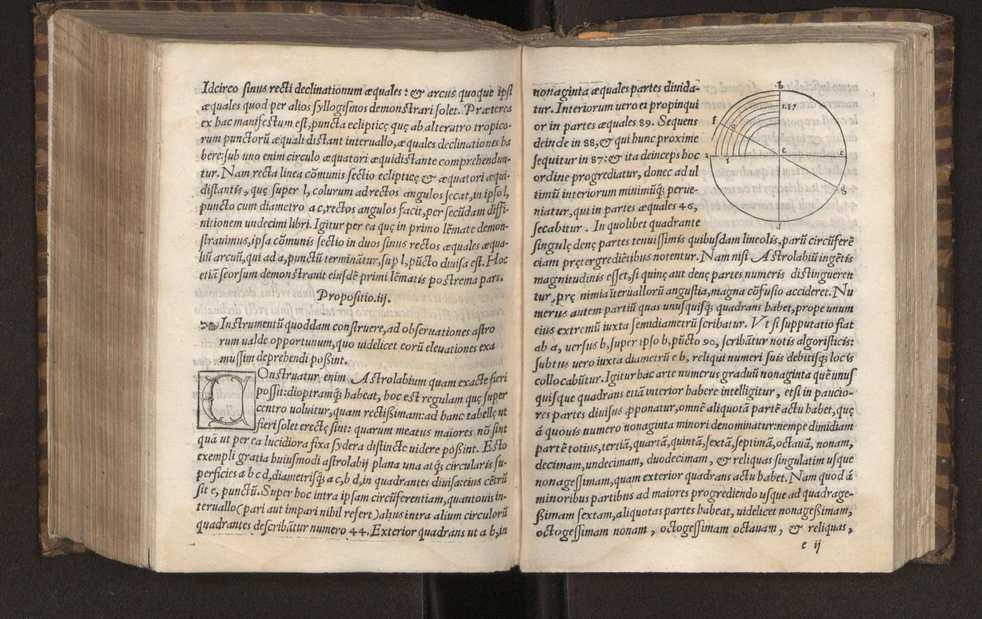 Idcirco sinus recti declinationum æquales: & arcus quoque ipsi
æquales quod per alios syllogismos demonstrari solet. Præterea
ex hac manifestum est, puncta eclipticę quę ab alterutro tropico-
rum punctorū æquali distant interuallo, æquales declinationes ha
bere: sub uno enim circulo æquatori æquidistante comprehendun-
tur. Nam recta linea cōmunis sectio eclipticę & æquatori æqui-
distantis, quę super l, colurum ad rectos angulos secat, in ipso l,
puncto cum diametro a c, rectos angulos facit, per secūdam diffi-
nitionem undecimi libri. Igitur per ea quę in primo lēmate demon-
strauimus, ipsa cōmunis sectio in duos sinus rectos æquales æqua-
liū arcuū, qui ad a, punctū terminātur, sup l, pūcto diuisa est. Hoc
etiā seorsum demonstrauit eiusdē primi lēmatis postrema pars.
Propositio.iij.
Instrumentū quoddam construere, ad obseruationes astro
rum ualde opportunum, quo uidelicet eorū eleuationes exa
mussim deprehendi possint.
COnstruatur enim Astrolabium quam exacte fieri
possit: dioptramq́ habeat, hoc est regulam quę super
centro uoluitur, quam rectissimam: ad hanc tabellę ut
fieri solet erectę sint: quarum meatus maiores nō sint
quā ut per ea lucidiora fixa sydera distincte uidere possint. Esto
exempli gratia huiusmodi astrolabij plana una atq́ circularis su-
perficies a b c d, diametrisq́ a c, b d, in quadrantes diuisa: eius cētrū
sit e, punctū. Super hoc intra ipsam circūferentiam, quantouis in-
teruallo (pari aut impari nihil refert) alius intra alium circulorū
quadrantes describātur numero 44. Exterior quadrans ut a b, in
nonaginta æquales partes diuida-
tur. Interiorum uero ei propinqui
or in partes æquales 89. Sequens
deinde in 88, & qui hunc proxime
sequitur in 87: & ita deinceps hoc
ordine progrediatur, donec ad ul
timū interiorum minimūq́ perue-
niatur, qui in partes æquales 46,
secabitur. In quolibet quadrante
singulę denę partes tenuissimis quibusdam lineolis, parū circūferē
ciam prętergrediētibus notentur. Nam nisi Astrolabiū ingētis
magnitudinis esset, si quinę aut denę partes numeris distingueren
tur, prę nimia īteruallorū angustia, magna cōfusio accideret. Nu
merus autem partiū quas unusquisq́ quadrans habet, prope unum
eius extremū iuxta semidiametrū scribatur. Vt si supputatio fiat
ab a, uersus b, super ipso b, pūcto 90, scribātur notis algoristicis:
subtus uero iuxta diametrū e b, reliqui numeri suis debitisq́ locis
collocabūtur. Igitur hac arte numerus graduū nonaginta quē unus
quisque quadrans etiā interior habere intelligitur, etsi in paucio-
res partes diuisus ꝓponatur, omnē aliquotā partē actu habet, quę
á quouis numero nonaginta minori denominatur: nempe dimidiam
partē totius, tertiā, quartā, quintā, sextā, septimā, octauā, nonam,
decimam, undecimam, duodecimam, & reliquas singulatim usque
nonagesimam, quam exterior quadrans actu habet. Nam quod á
minoribus partibus ad maiores progrediendo usque ad quadrage-
ssimam sextam, aliquotas partes habeat, uidelicet nonagessimam,
octogessimam nonam, octogessimam octauam, & reliquas,
e ij
b
87
f
a
e
c
g